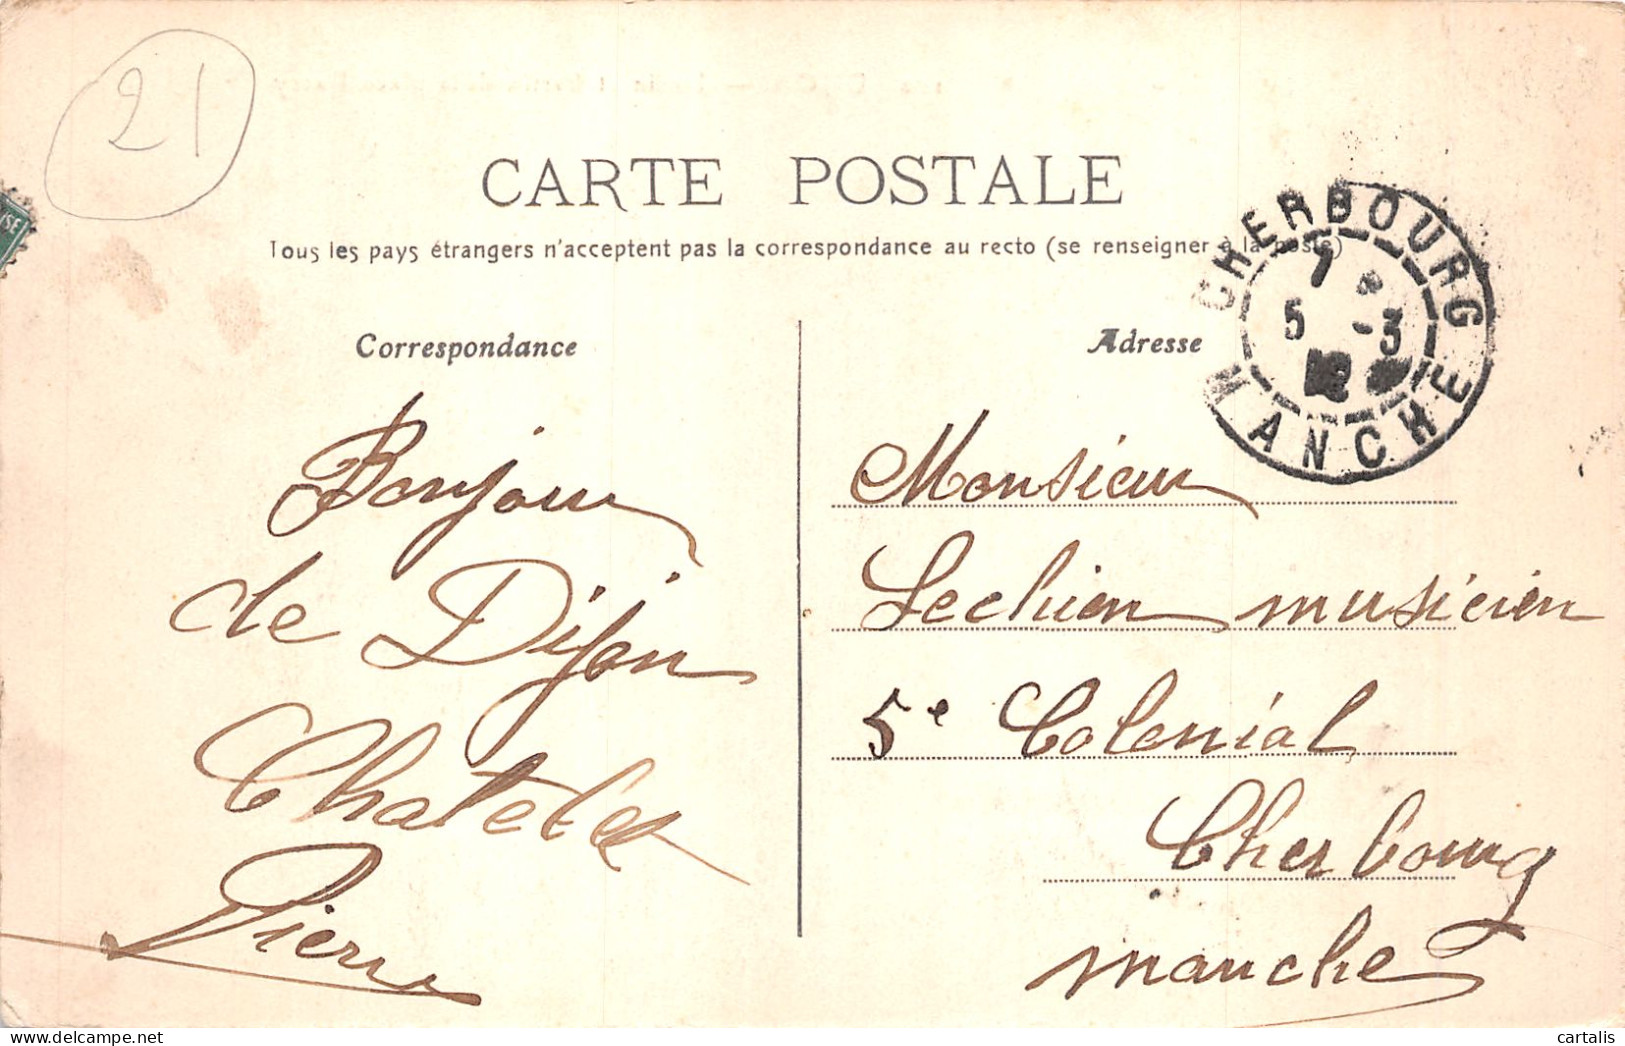 21
CARTE POSTALE
Tous les pays étrangers n'acceptent pas la correspondance au recto (se renseigner à la poste)
CHERBOURG
7
5 -3
12
MANCHE
Correspondance
Bonjour
de Dijon
Chatelet
Pierre
Adresse
Monsieur
Lechien musicien
5e Colonial
Cherbourg
manche
cartalis